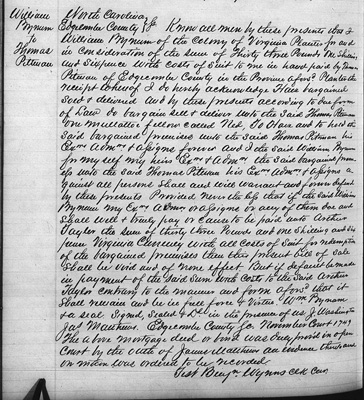 William Bynum to Thomas Pitman
North Carolina
Edgecombe County Ss Know all men by these presents that I
William Bynum of the Colony of Virginia Planter for and
in consideration of the sum of Thirty three Pounds one Shilling
and Sixpence with costs of suit to me in hand paid by Thomas
Pitman of Edgecombe County in the Province afors. Planter the
receipt whereof I do hereby acknowledge Have bargained
sold & delivered and by these presents according to due form
of Law do bargain sell & deliver unto the said Thomas Pitman
one mullatter fellow called Ned. To Have and to hold the
said bargained premises unto the said Thomas Pitman his
Exrs Admrs & assigns forever And I the said William Bynum
for my self my heirs Exrs & Admrs the said bargained premi
ses unto the said Thomas Pitman his Exrs Admrs & assigns a
gainst all persons shall and will warrant and forever defend
by these presents Provided nevertheless that if the said William
Bynum my Exrs Admrs or assigns or any of them do and
shall well & truly pay or cause to be paid unto Arthur
Taylor the sum of thirty three Pounds and one Shilling and six
pence Virginia Currency with all costs of Suit for redemption
of the bargained premises then this present bill of sale
shall be void and of none effect But if default be made
in payment of the said Sum and costs to the said Arthur
Taylor contrary to the manner and form afors that it
shall remain and be in full force & virtue. Wm Bynum
& seal Signed, Sealed & Dld in the presence of us J. Washington
Jas Matthews. Edgecombe County Sc November Court 1749
The above mortgage deed or bond was duly proved in open
Court by the oath of James Matthews an evidence thereto and
on motion was ordered to be recorded.
Test Benjn Wynns Clk Cur